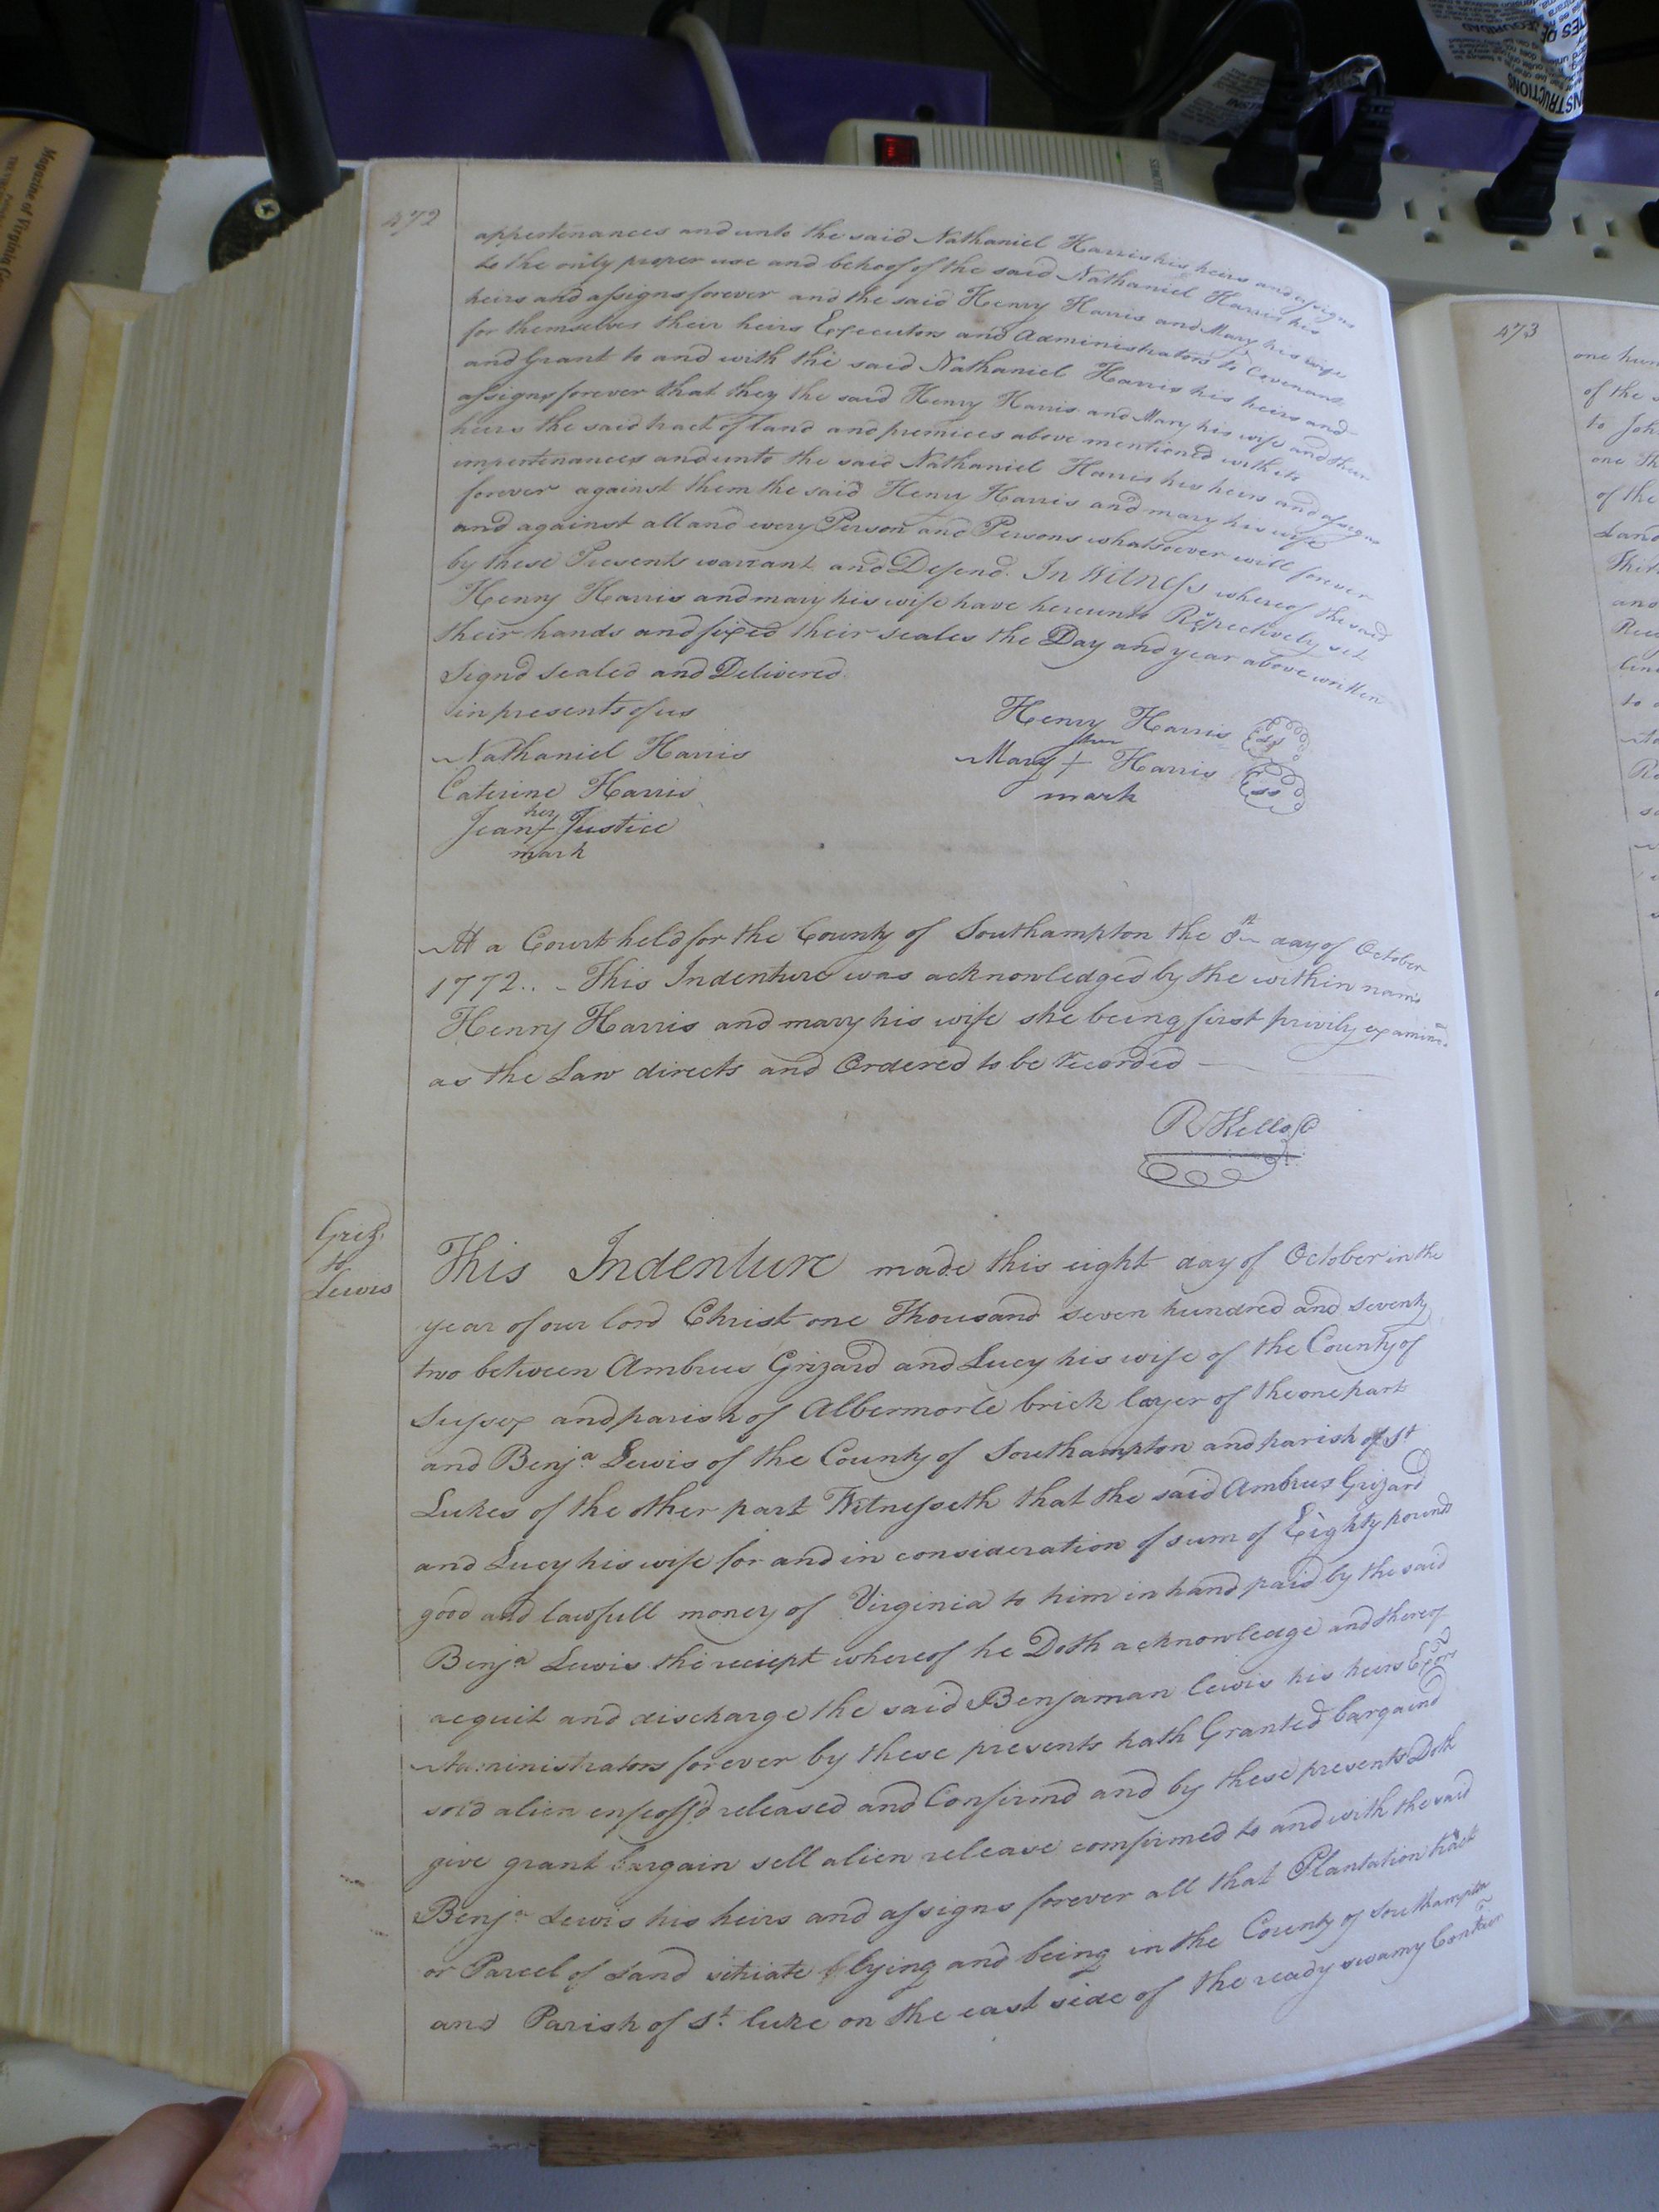 472
appertenances and unto the said Nathaniel Harris his heirs and assigns
to the only proper use and behoof of the said Nathaniel Harris his
heirs and assigns forever and the said Henry Harris and Mary his wife
for themselves their heirs Executors and Administrators to Covenant
and Grant to and with the said Nathaniel Harris his heirs and
assigns forever that they the said Henry Harris and Mary his wife and their
heirs the said tract of land and premices above mentioned with its
impertenances and unto the said Nathaniel Harris his heirs and assigns
forever against them the said Henry Harris and mary his wife
and against all and every Person and Persons whatsoever will forever
by these Presents warrant and Defend. In Witness whereof the said
Henry Harris and mary his wife have hereunto Respectively set
their hands and fixed their seales the Day and year above written
Signd sealed and Delivered
in presents of us
Henry Harris
Nathaniel Harris
her
Mary + Harris
mark
Caterine Harris
her
Jean + Justice
mark
At a Court held for the County of Southampton the 8th day of October
1772.. - This Indenture was acknowledged by the within namd
Henry Harris and mary his wife she being first privily examined
as the Law directs and Ordered to be recorded
R Kello C
Griz.
to
Lewis
This Indenture made this eight day of October in the
year of our lord Christ one Thousand seven hundred and seventy
two between Ambrus Grizard and Lucy his wife of the County of
Sussex and parish of Albermorle brick layer of the one part
and Benja Lewis of the County of Southampton and parish of St
Lukes of the other part Witnesseth that the said Ambrus Grizard
and Lucy his wife for and in consideration of sum of Eighty pounds
good and lawfull money of Virginia to him in hand paid by the said
Benja Lewis the reciept whereof he Doth acknowledge and thereof
acquit and discharge the said Benjaman lewis his heirs Exors
Administrators forever by these presents hath Granted bargaind
sold alien enfeoff'd released and Confirmd and by these presents Doth
give grant bargain sell alien release comfirmed to and with the said
Benja Lewis his heirs and assigns forever all that Plantation tract
or Parcel of Land sitiate lying and being in the County of Southampton
and Parish of St. luke on the east side of the ready swamy Contain
473
one hun
of the
to Joh
one th
of the
Land
and
to
INSTRUCTIONS
Magazine of Virginia